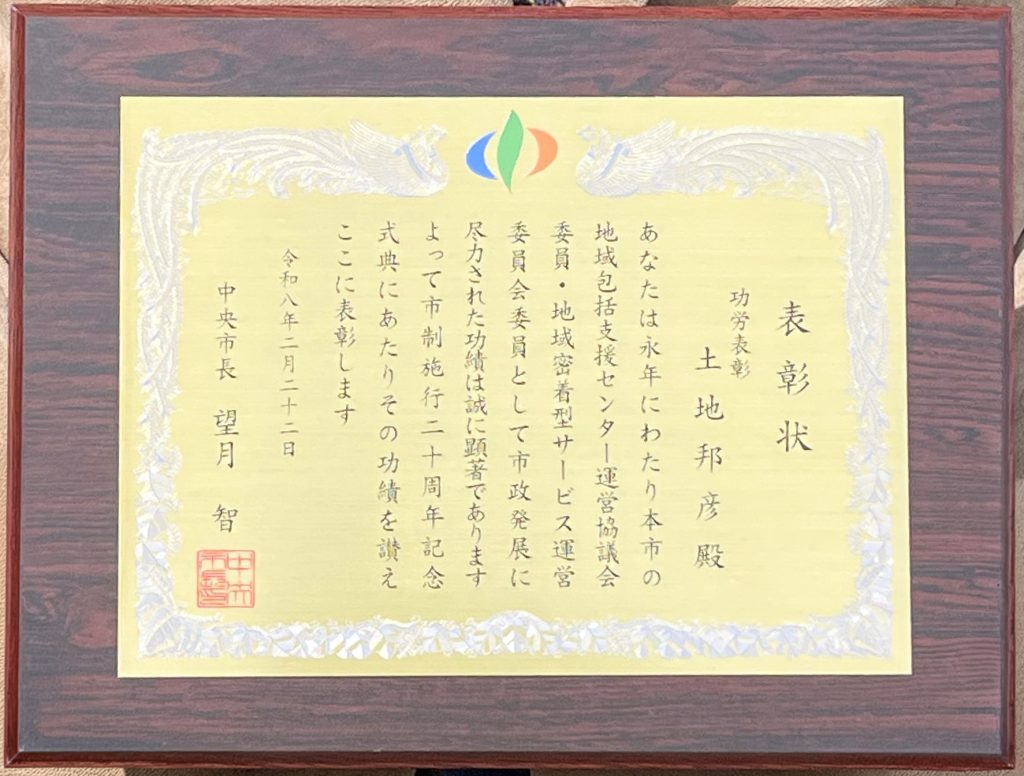 表彰状
功労表彰
土地邦彦殿
あなたは永年にわたり本市の
地域包括支援センター運営協議会
委員・地域密着型サービス運営
委員会委員として市政発展に
尽力された功績は誠に顕著であります
よって市制施行二十周年記念
式典にあたりその功績を讃え
ここに表彰します
令和八年二月二十二日
中央市長 望月 智